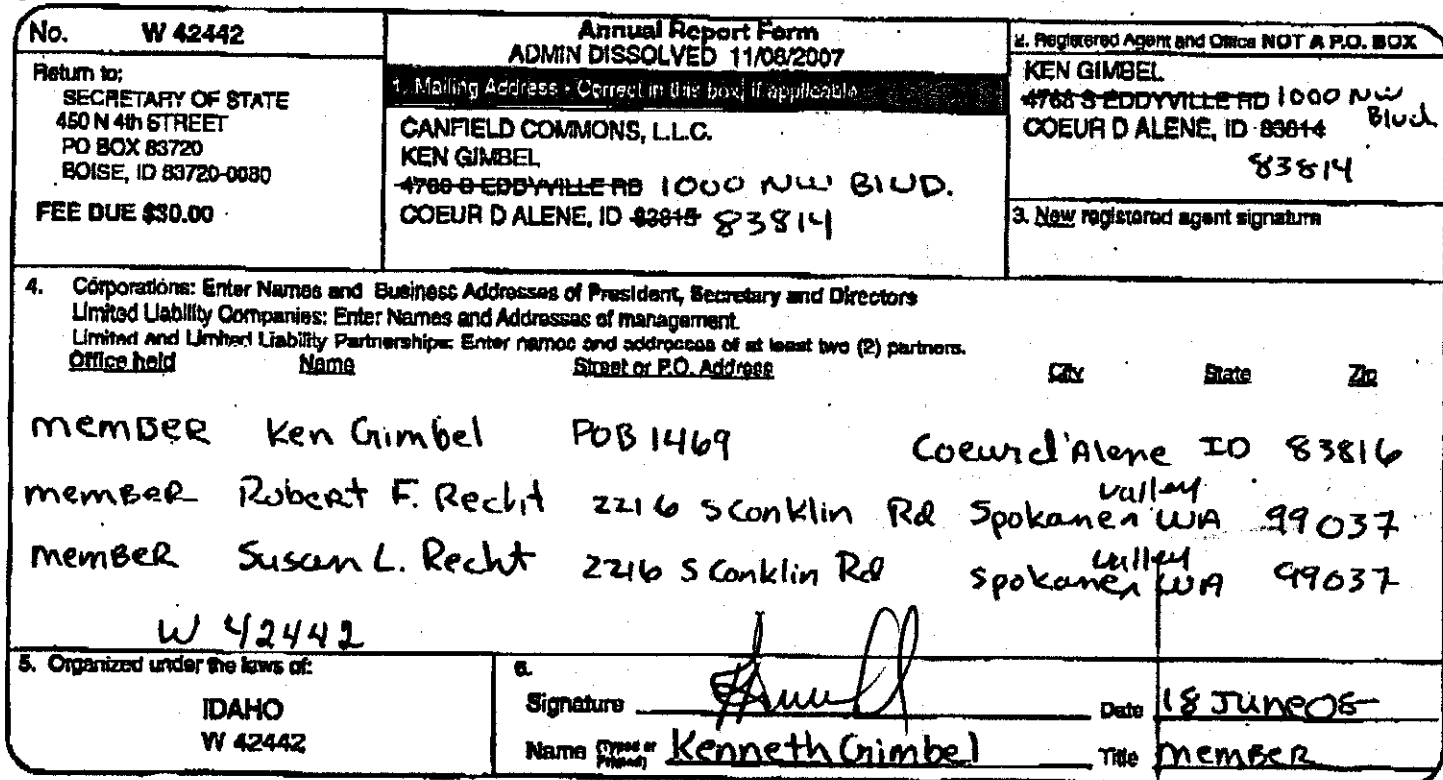 No. W 42442
Return to:
SECRETARY OF STATE
450 N 4th STREET
PO BOX 83720
BOISE, ID 83720-0080
FEE DUE $30.00
Annual Report Form
ADMIN DISSOLVED 11/08/2007
1. Mailing Address - Correct in this box, if applicable
CANFIELD COMMONS, L.L.C.
KEN GIMBEL
4766 S EDDYVILLE RD 1000 NW BLVD.
COEUR D ALENE, ID 83815 83814
2. Registered Agent and Office NOT A P.O. BOX
KEN GIMBEL
4766 S EDDYVILLE RD 1000 NW
Blvd
COEUR D ALENE, ID 83814
83814
3. New registered agent signature
4. Corporations: Enter Names and Business Addresses of President, Secretary and Directors
Limited Liability Companies: Enter Names and Addresses of management.
Limited and Limited Liability Partnerships: Enter names and addresses of at least two (2) partners.
Office held Name Street or P.O. Address City State Zip
member Ken Gimbel POB 1469 Coeur d'Alene ID 83816
member Robert F. Recht 2216 S Conklin Rd Spokane valley WA 99037
member Susan L. Recht 2216 S Conklin Rd Spokane valley WA 99037
W 42442
5. Organized under the laws of:
IDAHO
W 42442
6.
Signature Date 18 June
Name (Typed or Printed) Kenneth Gimbel Title member